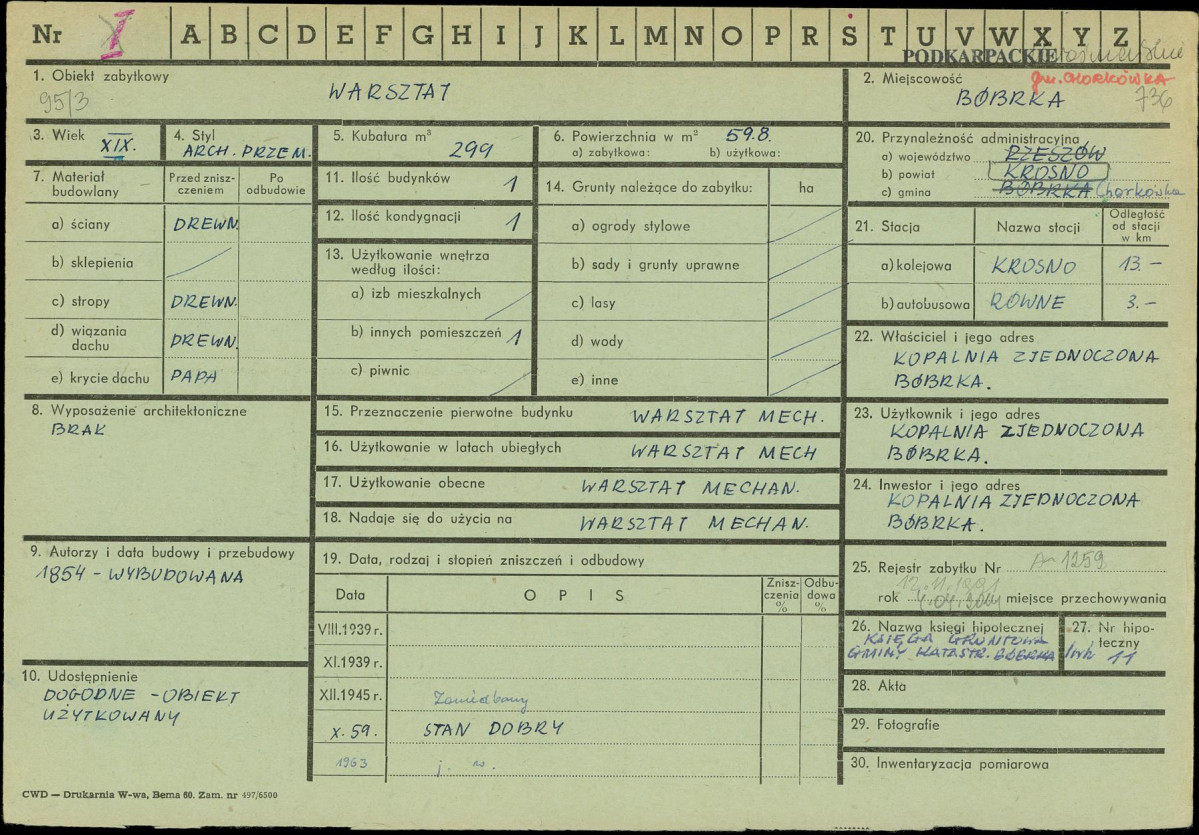 Nr I A B C D E F G H I J K L M N O P R S T U V W X Y Z
PODKARPACKIE
1. Obiekt zabytkowy
95/3
WARSZTAT
2. Miejscowość
gm. CHORKÓWKA
BÓBRKA
736
3. Wiek
XIX.
4. Styl
ARCH. PRZEM.
5. Kubatura m³
299
6. Powierzchnia w m² 59.8.
a) zabytkowa: b) użytkowa:
7. Materiał budowlany
Przed zniszczeniem
Po odbudowie
a) ściany DREWN.
b) sklepienia
c) stropy DREWN.
d) wiązania dachu DREWN.
e) krycie dachu PAPA
8. Wyposażenie architektoniczne
BRAK
9. Autorzy i data budowy i przebudowy
1854 - WYBUDOWANA
10. Udostępnienie
DOGODNE - OBIEKT
UŻYTKOWANY
11. Ilość budynków 1
12. Ilość kondygnacji 1
13. Użytkowanie wnętrza
według ilości:
a) izb mieszkalnych
b) innych pomieszczeń 1
c) piwnic
14. Grunty należące do zabytku: ha
a) ogrody stylowe
b) sady i grunty uprawne
c) lasy
d) wody
e) inne
15. Przeznaczenie pierwotne budynku WARSZTAT MECH.
16. Użytkowanie w latach ubiegłych WARSZTAT MECH
17. Użytkowanie obecne WARSZTAT MECHAN.
18. Nadaje się do użycia na WARSZTAT MECHAN.
19. Data, rodzaj i stopień zniszczeń i odbudowy
Data OPIS Zniszczenia % Odbudowa %
VIII.1939 r.
XI.1939 r.
XII.1945 r. Zaniedbany
X. 59. STAN DOBRY
1963 j. w.
20. Przynależność administracyjna
a) województwo RZESZÓW
b) powiat KROSNO
c) gmina BÓBRKA Chorkówka
21. Stacja Nazwa stocji Odległość od stacji w km
a) kolejowa KROSNO 13.-
b) autobusowa RÓWNE 3.-
22. Właściciel i jego adres
KOPALNIA ZJEDNOCZONA
BÓBRKA.
23. Użytkownik i jego adres
KOPALNIA ZJEDNOCZONA
BÓBRKA.
24. Inwestor i jego adres
KOPALNIA ZJEDNOCZONA
BÓBRKA.
25. Rejestr zabytku Nr A-1259
rok miejsce przechowywania
26. Nazwa księgi hipotecznej
KSIĘGA GRUNTOWA
GMINY KATASTR. BÓBRKA
27. Nr hipoteczny
lwh 11
28. Akta
29. Fotografie
30. Inwentaryzacja pomiarowa
CWD — Drukarnia W-wa, Bema 60. Zam. nr 497/6500